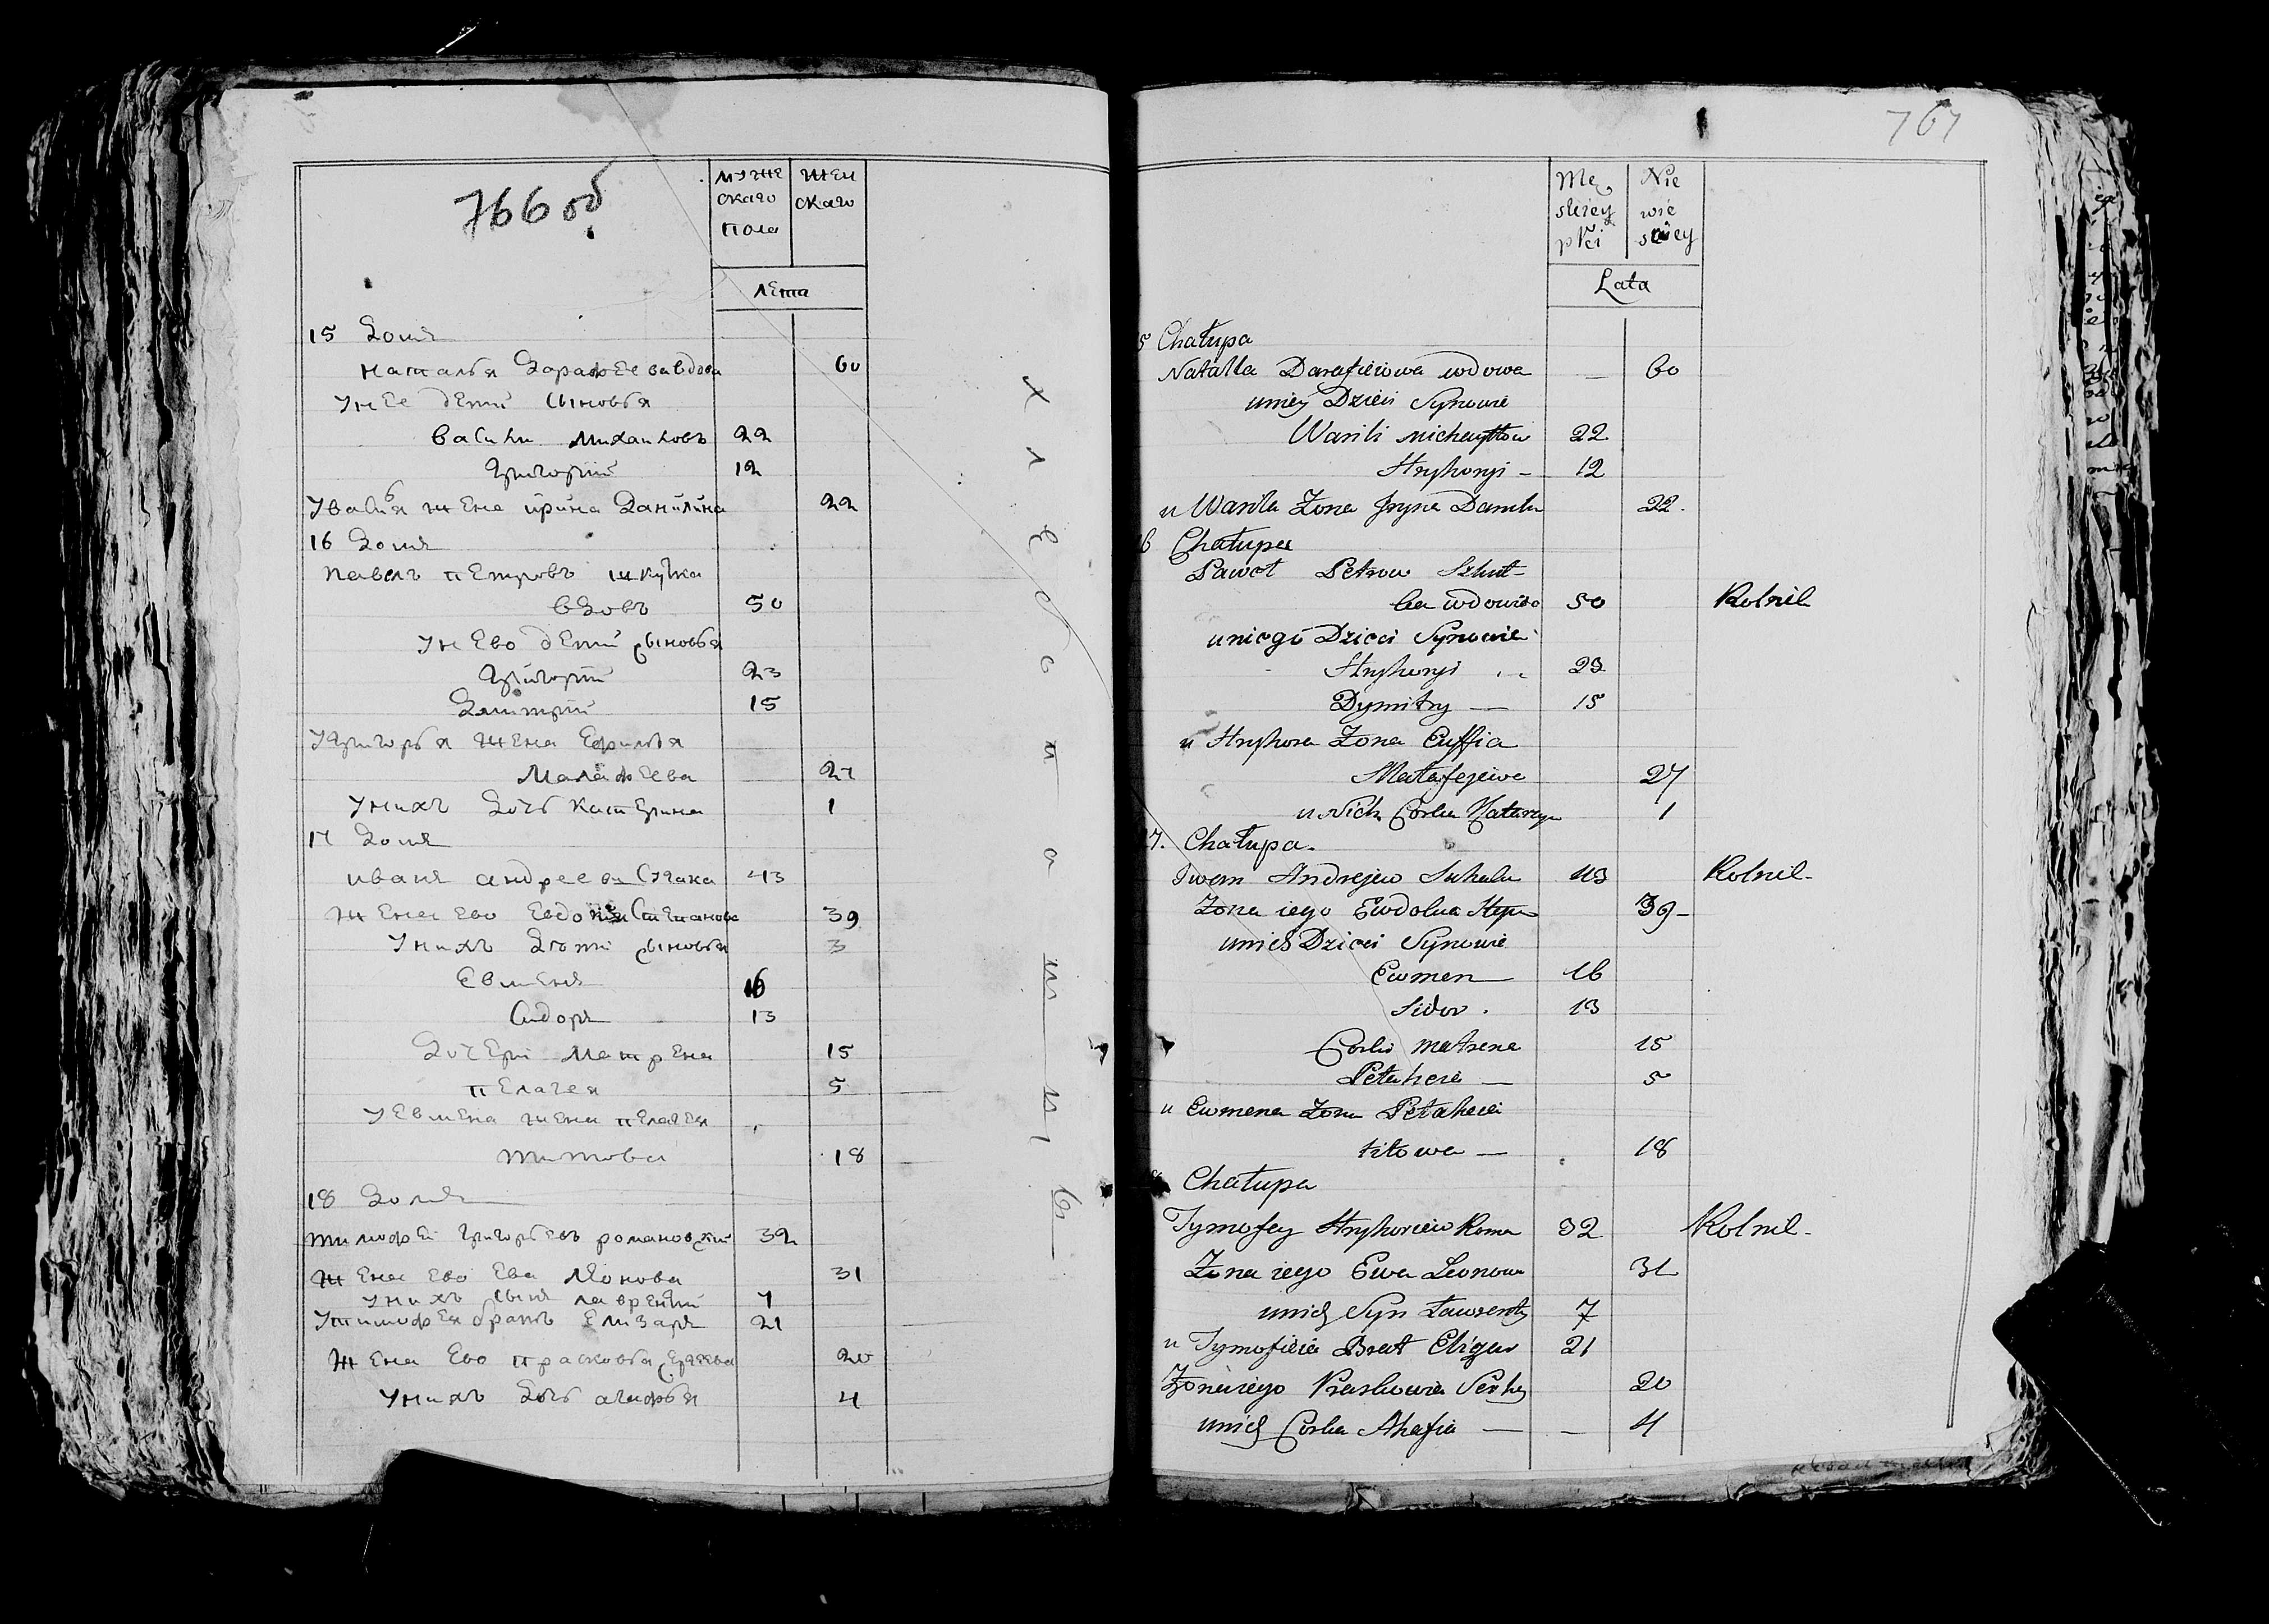 766 об
муже
скаго
пола
жен
скаго
лета
15 Домъ
Наталья Дорофеева вдова 60
У нее дети сыновья
Василы Михаиловъ 22
Григорий 12
У Василья жена Ирина Данилина 22
16 Домъ
Павелъ Петровъ Шкутка
вдовъ 50
У нево дети сыновья
Григорий 23
Дмитрий 15
У Григорья жена Ефимья
Малафеева 27
У нихъ дочь Катерина 1
17 Домъ
Иванъ Андреевъ 43
Жена ево Евдокия Степанова 39
У нихъ дети сыновья 3
Евменъ 16
Сидоръ 13
Дочери Матрена 15
Пелагея 5
У Евмена жена Пелагея
Титова 18
18 Домъ
Тимофей Григорьевъ Романовский 32
Жена ево Ева Леонова 31
У нихъ сынъ Лаврентий 7
У Тимофея братъ Елизаръ 21
Жена ево Прасковья 20
У нихъ дочь Агафья 4
хлебопашцы
767
Mę
skiey
płci
Nie
wie
sciey
Lata
5 Chałupa
Natalla Darafieiowa wdowa — 60
u niey Dzieci Synowie
Wasili Michayłow 22
Hryhoryi — 12
u Wasila Zona Jryna Danilu 22.
6 Chałupa
Pawoł Petrow Szkut-
ka wdowiec 50 Rolnik
u niego Dzieci Synowie
Hryhoryi 23
Dymitry — 15
u Hryhora Zona Euffia
Małafejewa 27
u Nich Corka Katarzyn 1
7. Chałupa.
Iwan Andrejew Suhaka 43 Rolnik-
Zona iego Ewdokia Step 39-
u nich Dzieci Synowie
Ewmen 16
Sidor . 13
Corki Matrena 15
Pełaheia — 5
u Ewmena Zona Pełaheia
titowa — 18
Chałupa
Tymofey Hryhoriew Roma 32 Rolnik-
Zona iego Ewa Leonowa 31
u nich Syn Ławrenty 7
u Tymofieia Brat Elizar 21
Zona iego Praskowia Serhy 20
u nich Corka Ahafia — — 4